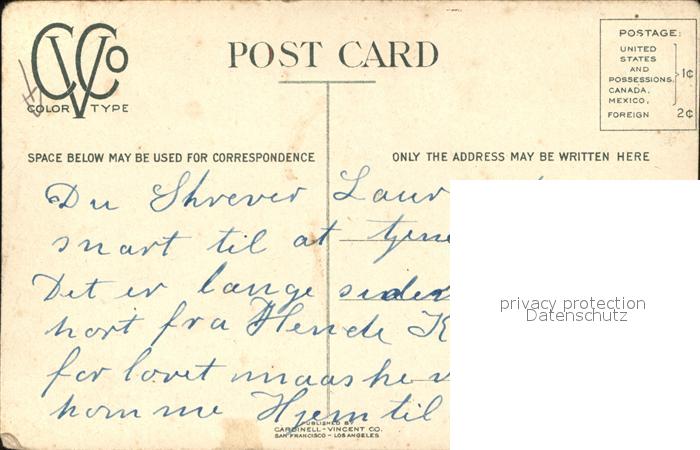 CVCo
COLOR TYPE
POST CARD
POSTAGE:
UNITED
STATES
AND
POSSESSIONS, 1¢
CANADA,
MEXICO,
FOREIGN 2¢
SPACE BELOW MAY BE USED FOR CORRESPONDENCE
ONLY THE ADDRESS MAY BE WRITTEN HERE
Du Skrever Laur
snart til at tjene
Det er lange siden
hort fra Hende K
for lovet maaske
komme Hjem til
privacy protection
Datenschutz
PUBLISHED BY
CARDINELL-VINCENT CO.
SAN FRANCISCO - LOS ANGELES